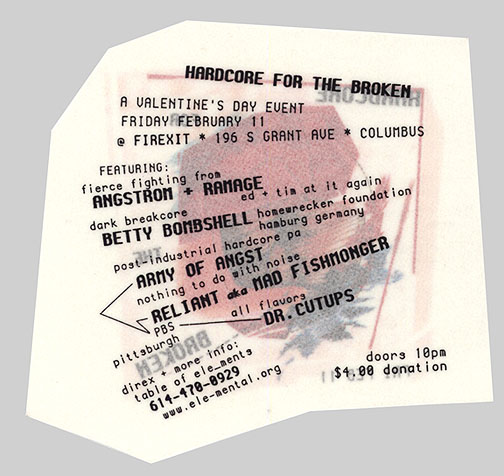 HARDCORE FOR THE BROKEN
A VALENTINE'S DAY EVENT
FRIDAY FEBRUARY 11
@ FIREXIT * 196 S GRANT AVE * COLUMBUS
FEATURING:
fierce fighting from
ANGSTROM + RAMAGE
ed + tim at it again
dark breakcore
BETTY BOMBSHELL
homewrecker foundation
hamburg germany
post-industrial hardcore pa
ARMY OF ANGST
nothing to do with noise
RELIANT aka MAD FISHMONGER
all flavors
PBS
DR.CUTUPS
pittsburgh
direx + more info:
table of ele_ments
614-470-0929
www.ele-mental.org
doors 10pm
$4.00 donation
HARDCORE
THE
BROKEN
FRI FEB 11